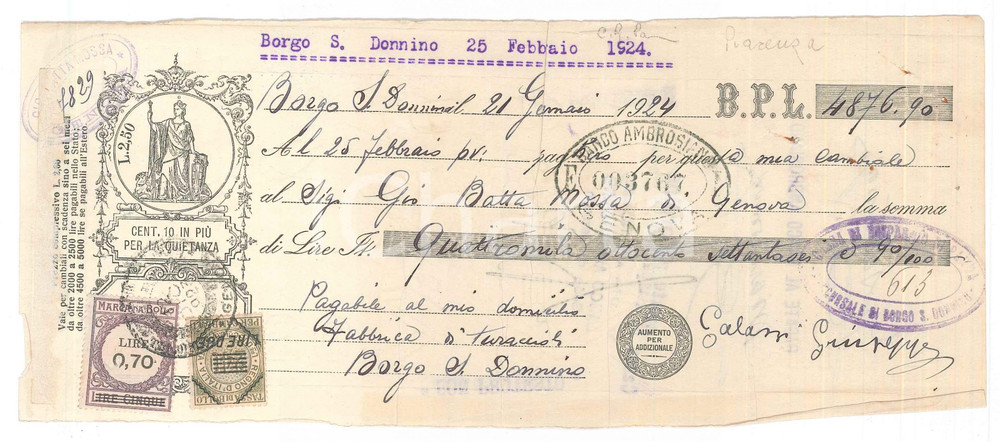 Borgo S. Donnino 25 Febbaio 1924.
Piacenza
7829
L. 2,50
CENT. 10 IN PIÙ
PER LA QUIETANZA
compressivo L. 2,60
Vale per cambiali con scadenza sino a sei mesi
da oltre 2000 a 2500 lire pagabili nello Stato;
da oltre 4500 a 5000 lire se pagabili all'Estero
Borgo S. Donnino il 21 Gennaio 1924 B.P.L. 4876.90
Al 25 febbraio pv. pagherò per questa mia cambiale
al Sigr Gio Batta Mossa di Genova la somma
di Lire It. Quattromila ottocento settantasei e 90/100
Pagabile al mio domicilio
Fabbrica di Turaccioli
Borgo S. Donnino
BANCO AMBROSIANO
E 003767
GENOVA
AUMENTO
PER
ADDIZIONALE
Galassi Giuseppe
613
SUCCURSALE DI BORGO S. DONNINO
MARCA DA BOLLO
LIRE
0,70
LIRE CINQUE
LIRE DUE
TASSA DI BOLLO
REGNO D'ITALIA